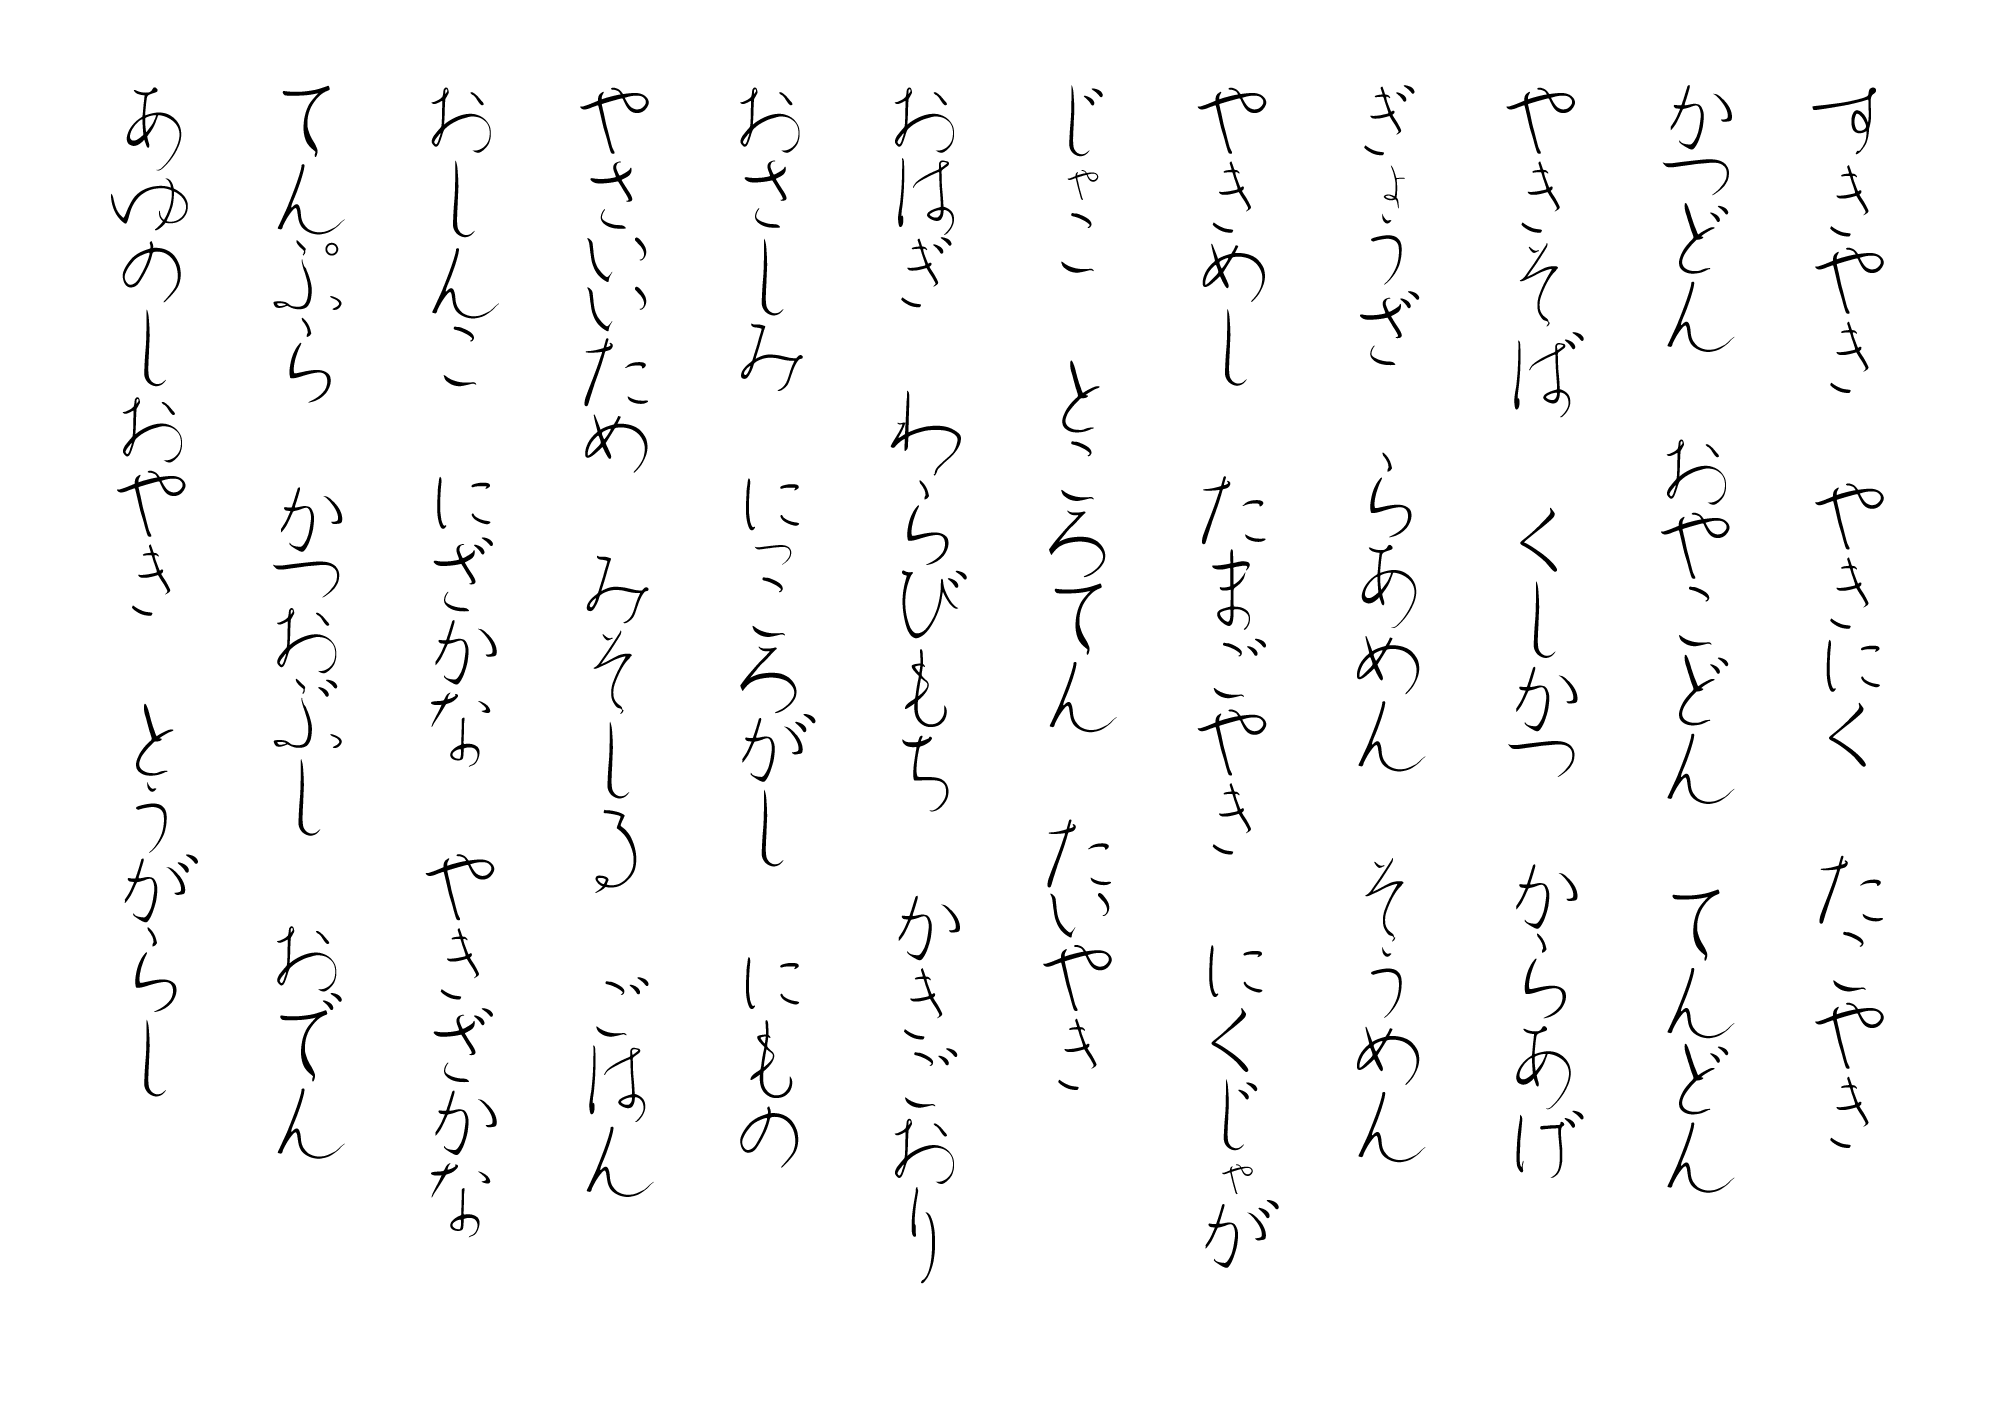 すきやき　やきにく　たこやき
かつどん　おやこどん　てんどん
やきそば　くしかつ　からあげ
ぎょうざ　らあめん　そうめん
やきめし　たまごやき　にくじゃが
じゃこ　ところてん　たいやき
おはぎ　わらびもち　かきごおり
おさしみ　にっころがし　にもの
やさいいため　みそしる　ごはん
おしんこ　にざかな　やきざかな
てんぷら　かつおぶし　おでん
あゆのしおやき　とうがらし